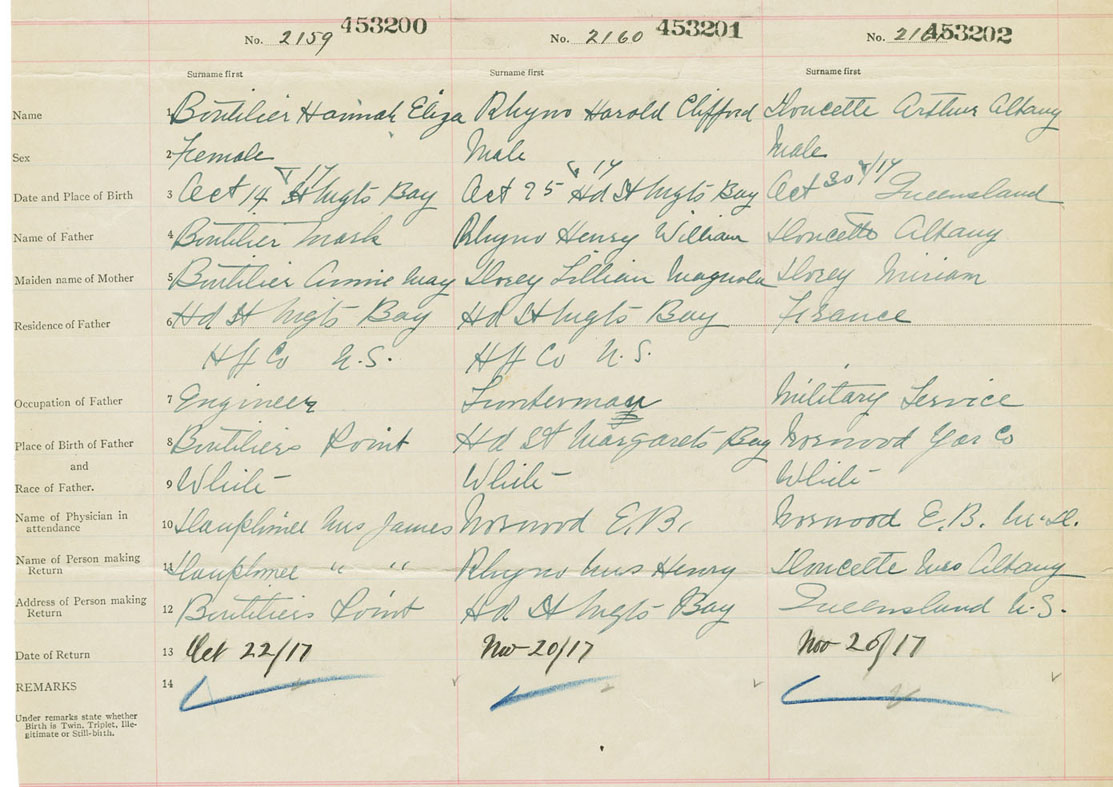 No. 2159 453200 No. 2160 453201 No. 453202
Surname first Surname first Surname first
Name 1 Boutilier Hannah Eliza Rhyno Harold Clifford Doucette Arthur Albany
Sex 2 Female Male Male
Date and Place of Birth 3 Oct 14/17 St Mgts Bay Oct 25/17 Hd St Mgts Bay Oct 30/17 Queensland
Name of Father 4 Boutilier Mark Rhyno Henry William Doucette Albany
Maiden name of Mother 5 Boutilier Annie May Dorey Lillian Magnola Dorey Miriam
Residence of Father 6 Hd St Mgts Bay Hd St Mgts Bay France
Hfx Co N.S. Hfx Co N.S.
Occupation of Father 7 Engineer Lunterman Military Service
Place of Birth of Father 8 Boutiliers Point Hd St Margarets Bay Norwood Yar Co
and
Race of Father. 9 White White White
Name of Physician in
attendance 10 Dauphinee Mrs James Norwood E.B. Norwood E.B. M.D.
Name of Person making
Return 11 Dauphinee " " Rhyno Mrs Henry Doucette Mrs Albany
Address of Person making
Return 12 Boutiliers Point Hd St Mgts Bay Queensland N.S.
Date of Return 13 Oct 22/17 Nov 20/17 Nov 20/17
REMARKS 14
Under remarks state whether
Birth is Twin, Triplet, Ille-
gitimate or Still-birth.